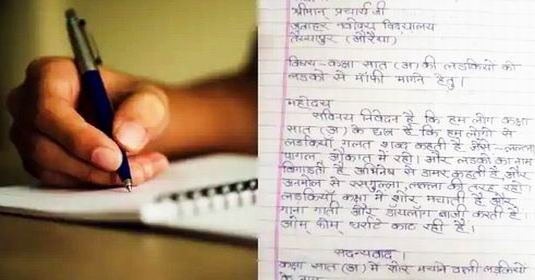 श्रीमान् प्रचार्य जी
जवाहर नवोदय विद्यालय
तैय्यापुर (औरैया)
विषय- कक्षा सात (अ) की लडकियों की
लडकों से माँफी मांगने हेतु।
महोदय
सविनय निवेदन है कि हम लोग कक्षा
सात (अ) के छात्र है कि हम लोगो से
लडकियाँ गलत शब्द कहती है जैसे- लल्ला
पागल औकात में रहो। और लडको का नाम
बिगाडती है अभिनेष से डामर कहती है और
अनमोल से रसगुल्ला, लल्ला की तरह रहो।
लडकियाँ कक्षा में शोर मचाती है और
गाना गाती और डायलॉग बाजी करती है
ओम फोम धर्राटे काट रही है।
सदन्यवाद।
कक्षा सात (अ) में शोर मचाने वाली लडकियों
के नाम